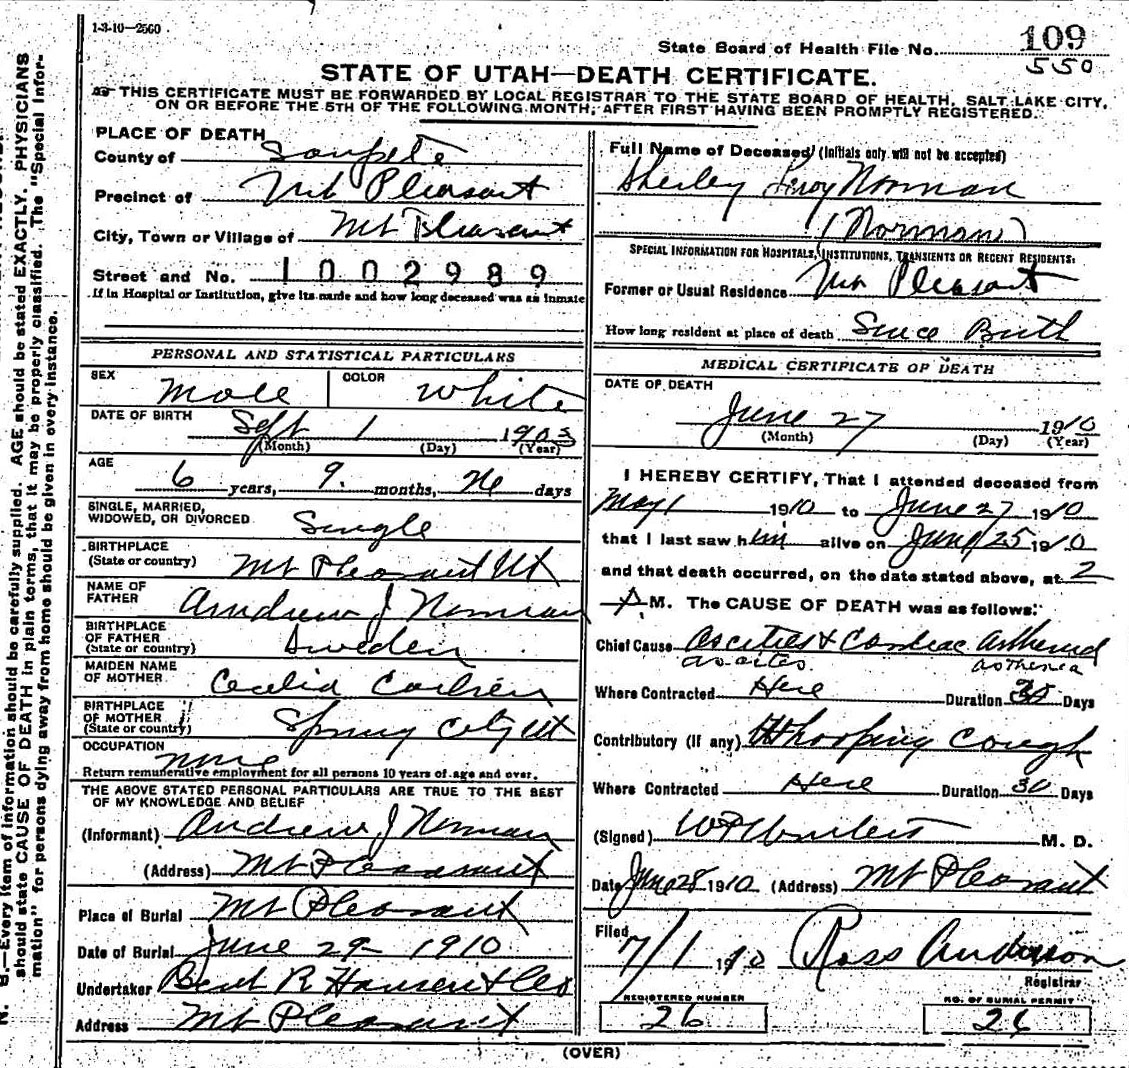 1-3-10—2560.
State Board of Health File No. 109
550
STATE OF UTAH—DEATH CERTIFICATE.
THIS CERTIFICATE MUST BE FORWARDED BY LOCAL REGISTRAR TO THE STATE BOARD OF HEALTH, SALT LAKE CITY,
ON OR BEFORE THE 5TH OF THE FOLLOWING MONTH, AFTER FIRST HAVING BEEN PROMPTLY REGISTERED.
PLACE OF DEATH
County of Sanpete
Precinct of Mt Pleasant
City, Town or Village of Mt Pleasant
Street and No. 1002989
If in Hospital or Institution, give its name and how long deceased was an inmate
Full Name of Deceased (Initials only will not be accepted)
Sherley Leroy Norman
(Norman)
SPECIAL INFORMATION FOR HOSPITALS, INSTITUTIONS, TRANSIENTS OR RECENT RESIDENTS:
Former or Usual Residence Mt Pleasant
How long resident at place of death Since Birth
PERSONAL AND STATISTICAL PARTICULARS
SEX Male COLOR White
DATE OF BIRTH Sept 1 1903
(Month) (Day) (Year)
AGE 6 years, 9. months, 26 days
SINGLE, MARRIED,
WIDOWED, OR DIVORCED Single
BIRTHPLACE
(State or country) Mt Pleasant Ut
NAME OF
FATHER Andrew J Norman
BIRTHPLACE
OF FATHER
(State or country) Sweden
MAIDEN NAME
OF MOTHER Cecelia
BIRTHPLACE
OF MOTHER
(State or country) Spring City Ut
OCCUPATION none
Return remunerative employment for all persons 10 years of age and over.
THE ABOVE STATED PERSONAL PARTICULARS ARE TRUE TO THE BEST
OF MY KNOWLEDGE AND BELIEF
(Informant) Andrew J Norman
(Address) Mt Pleasant
Place of Burial Mt Pleasant
Date of Burial June 29 1910
Undertaker R Hansen & Co
Address Mt Pleasant
MEDICAL CERTIFICATE OF DEATH
DATE OF DEATH
June 27 1910
(Month) (Day) (Year)
I HEREBY CERTIFY, That I attended deceased from
May 1 1910 to June 27 1910
that I last saw him alive on June 25 1910
and that death occurred, on the date stated above, at 2
A M. The CAUSE OF DEATH was as follows:
Chief Cause Ascities & Cardiac Asthenia
ascites asthenea
Where Contracted Here Duration 30 Days
Contributory (if any) Whooping Cough
Where Contracted Here Duration 30 Days
(Signed) M. D.
Date June 28 1910 (Address) Mt Pleasant
Filed
7/1 1910 Ross Anderson
Registrar
REGISTERED NUMBER
26
NO. OF BURIAL PERMIT
26
(OVER)
N. B.—Every item of information should be carefully supplied. AGE should be stated EXACTLY. PHYSICIANS
should state CAUSE OF DEATH in plain terms, that it may be properly classified. The "Special Infor-
mation" for persons dying away from home should be given in every instance.